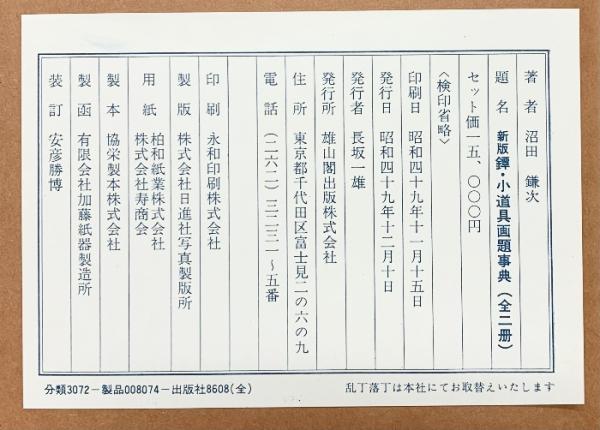 著者 沼田 鎌次
題名 新版 鐔・小道具画題事典(全二册)
セット価一五、〇〇〇円
〈検印省略〉
印刷日 昭和四十九年十一月十五日
発行日 昭和四十九年十二月十日
発行者 長坂一雄
発行所 雄山閣出版株式会社
住所 東京都千代田区富士見二の六の九
電話 (二六二)三二三一〜五番
印刷 永和印刷株式会社
製版 株式会社日進社写真製版所
用紙 柏和紙業株式会社
株式会社寿商会
製本 協栄製本株式会社
製函 有限会社加藤紙器製造所
装訂 安彦勝博
分類3072－製品008074－出版社8608(全)
乱丁落丁は本社にてお取替えいたします